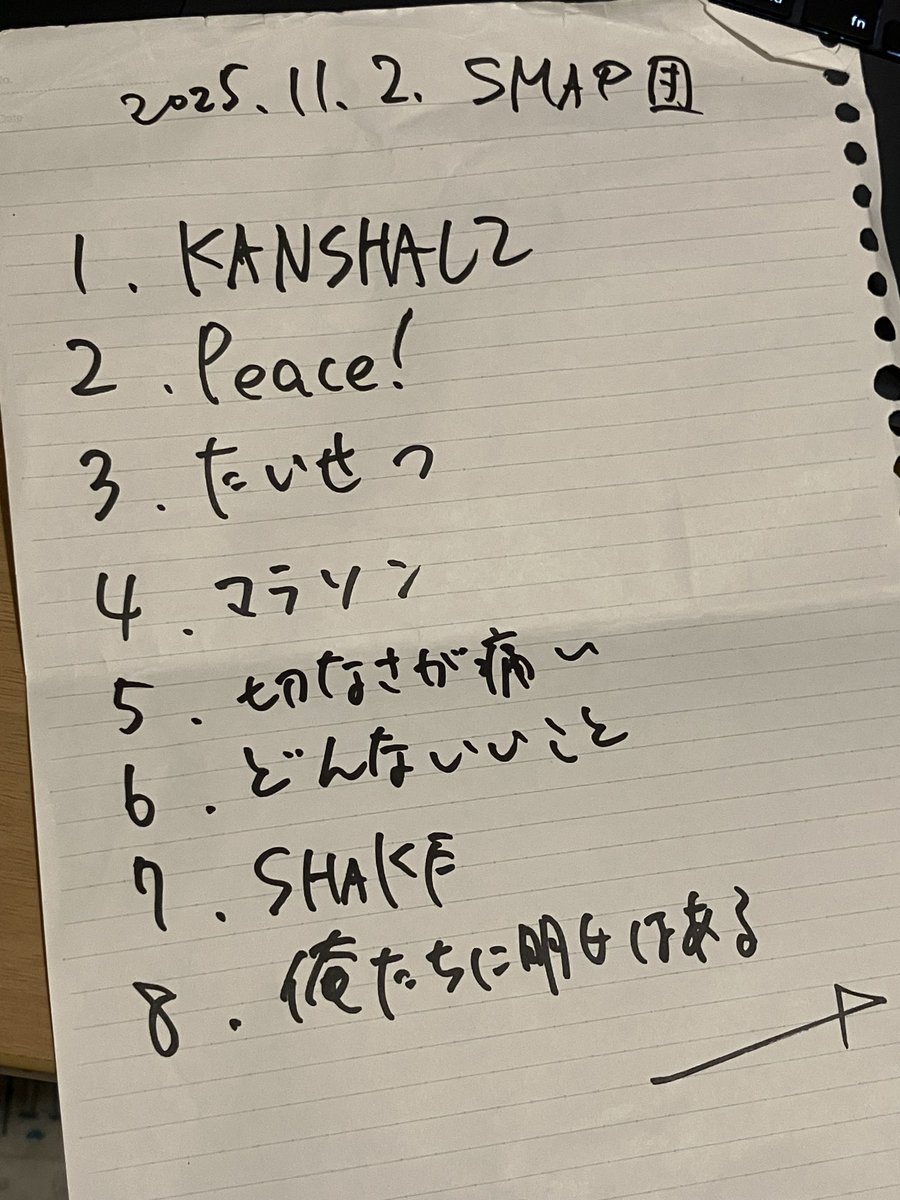 2025.11.2. SMAP団
1. KANSHAして
2. Peace!
3. たいせつ
4. マラソン
5. 切なさが痛い
6. どんないいこと
7. SHAKE
8. 俺たちに明日はある
fn